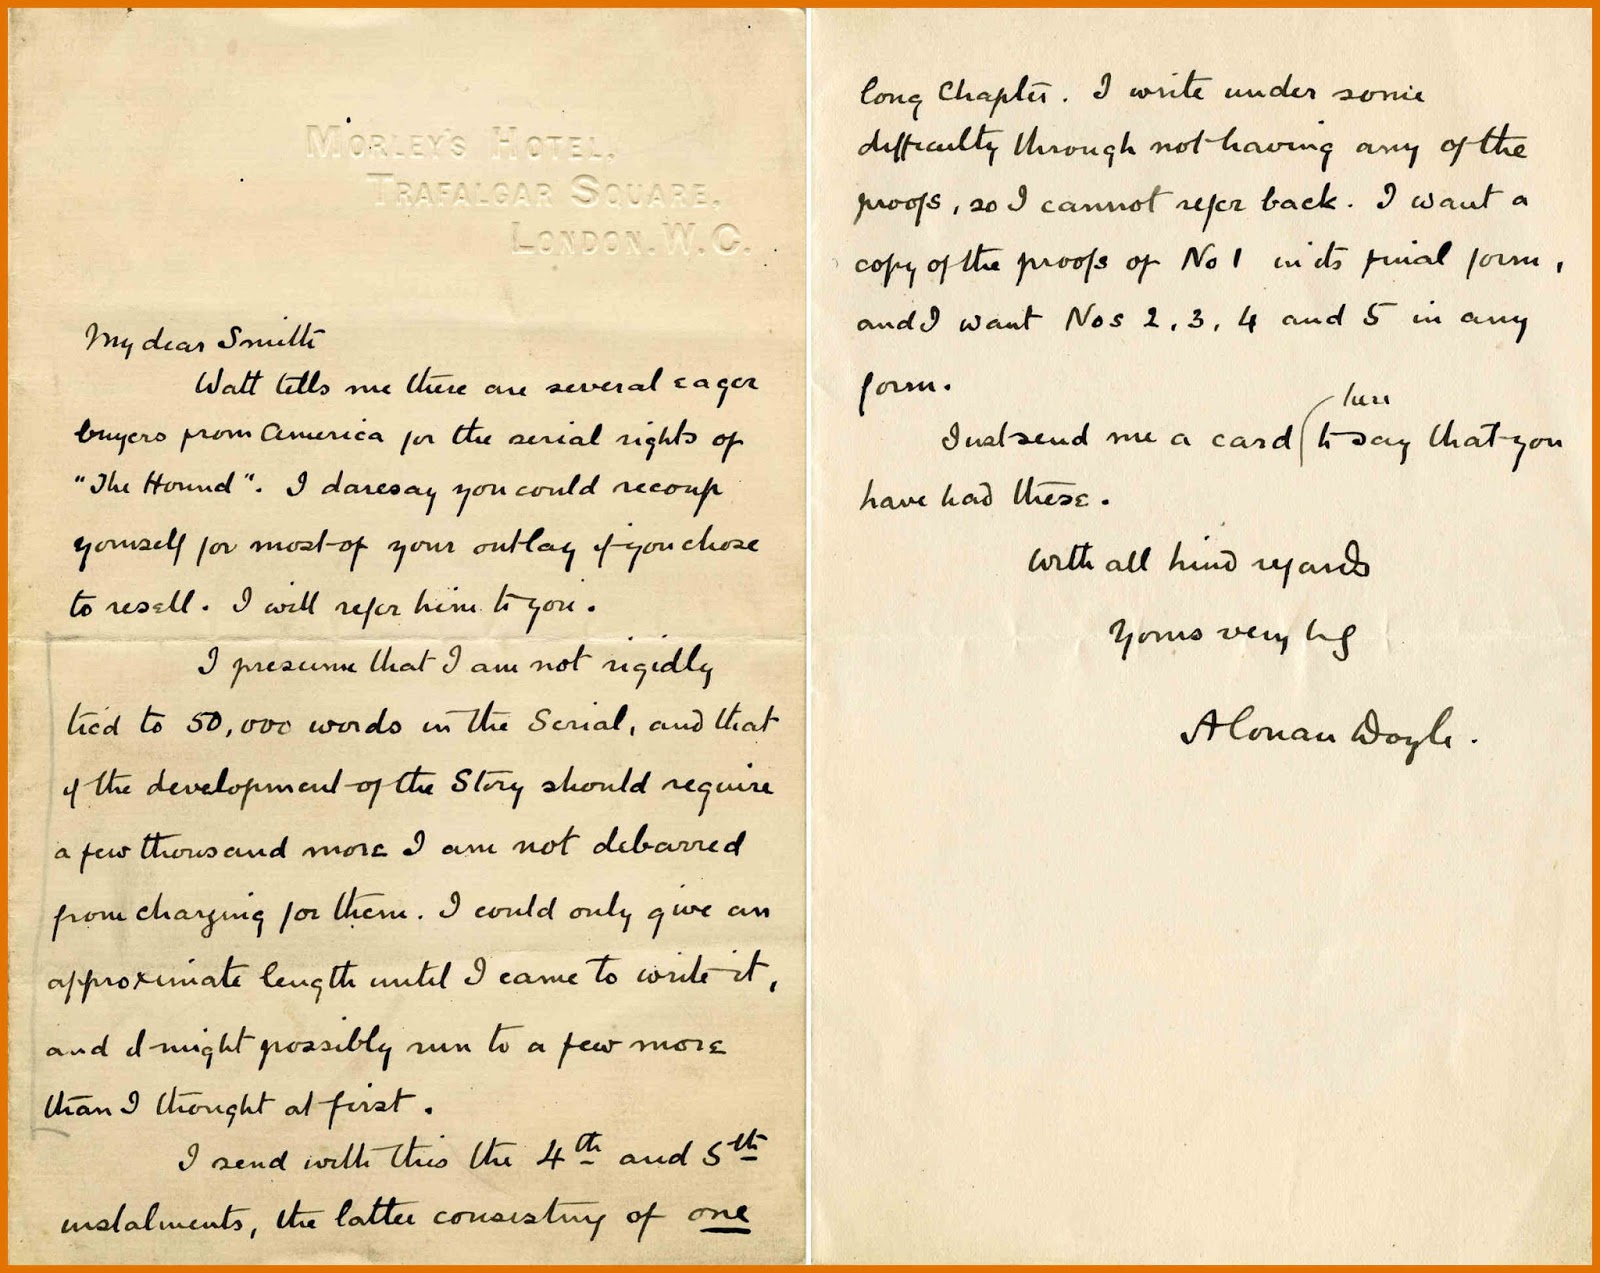 MORLEY'S HOTEL,
TRAFALGAR SQUARE,
LONDON. W.C.
My dear Smith
Watt tells me there are several eager
buyers from America for the serial rights of
"The Hound". I daresay you could recoup
yourself for most of your outlay if you chose
to resell. I will refer him to you.
I presume that I am not rigidly
tied to 50,000 words in the Serial, and that
if the development of the Story should require
a few thousand more I am not debarred
from charging for them. I could only give an
approximate length until I came to write it,
and I might possibly run to a few more
than I thought at first.
I send with this the 4th and 5th
instalments, the latter consisting of one
long Chapter. I write under some
difficulty through not having any of the
proofs, so I cannot refer back. I want a
copy of the proofs of No 1 in its final form,
and I want Nos 2, 3, 4 and 5 in any
form.
here
Just send me a card to say that you
have had these.
With all kind regards
Yours very
A Conan Doyle.